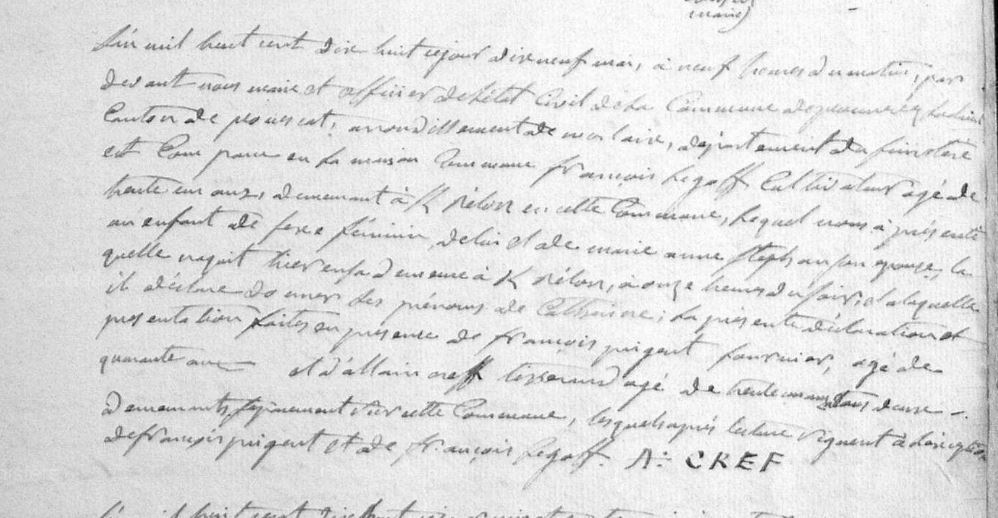 marie
L'an mil huit cent dix huit cejour dixneuf mai, à neuf heures du matin, par
devant nous maire et officier deletat Civil dela Commune de plounevez
Canton de plouescat, arrondissement de morlaix, département du finistere
est Comparu en la maison Commune françois Legoff Cultivateur agé de
trente un ans, demeurant à K/rélon en cette Commune, Lequel nous à présenté
un enfant de sexe féminin, delui et de marie anne Stephan son epouse, la
quelle naquit hier ensa demeure à K/rélon, à onze heures du soir, et alaquelle
il déclare donner les prénoms de Catherine; La presente déclaration et
presentation faites en présence de françois prigent fournier, agé de
quarante ans et d'allain creff tisserand agé de trente ans tous deux
demeurants séjournent sur cette Commune, lesquels après lecture signent à l'exception
de françois prigent et de françois Legoff. A: CREF
L'an mil huit cent dix huit